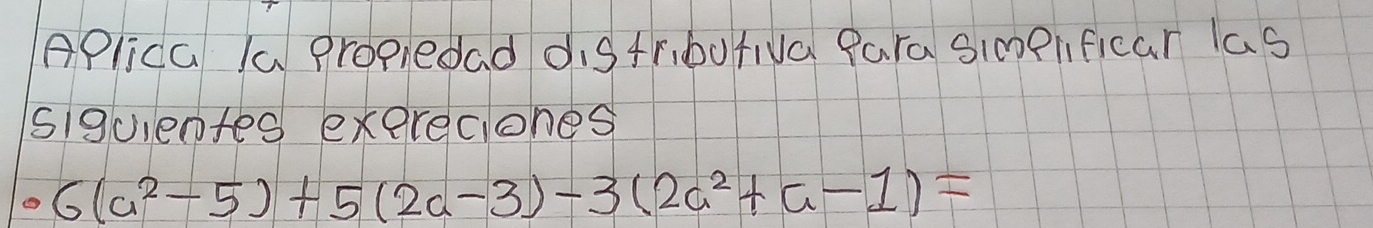 APlica la propiedad distributiva para simplificar las
siguientes expreciones
• 6(a²-5)+5(2a-3)-3(2a²+a-1)=